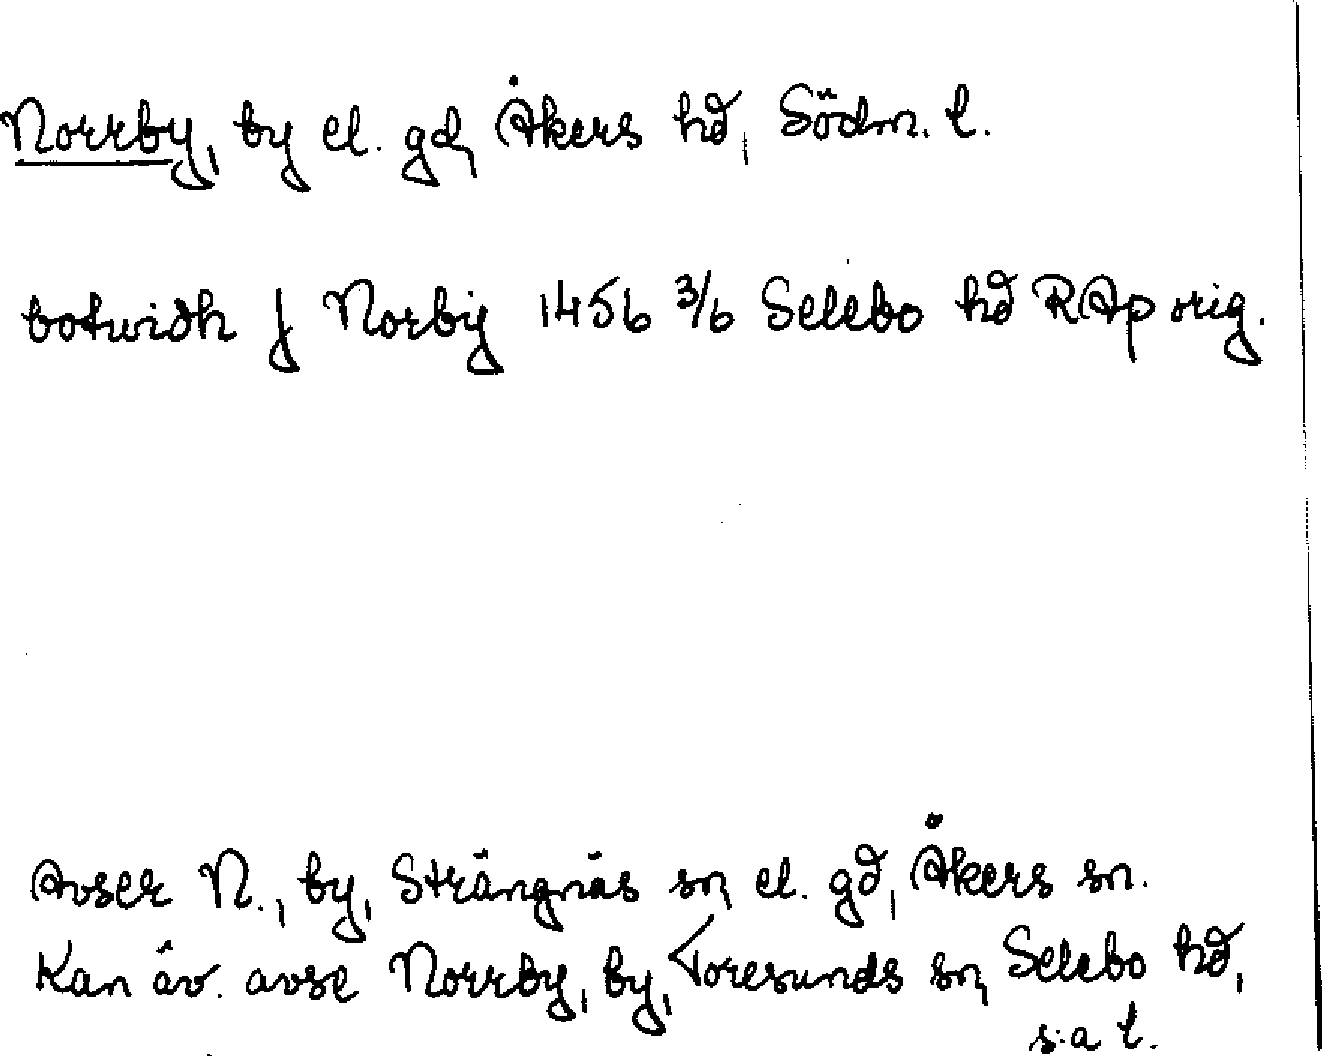 Norrby, by el. gd, Åkers hd, Södm. l.
botwidh j Norby 1456 3/6 Selebo hd RAp orig.
Avser N., by, Strängnäs sn, el. gd, Åkers sn.
Kan äv. avse Norrby, by, Toresunds sn, Selebo hd,
s:a l.